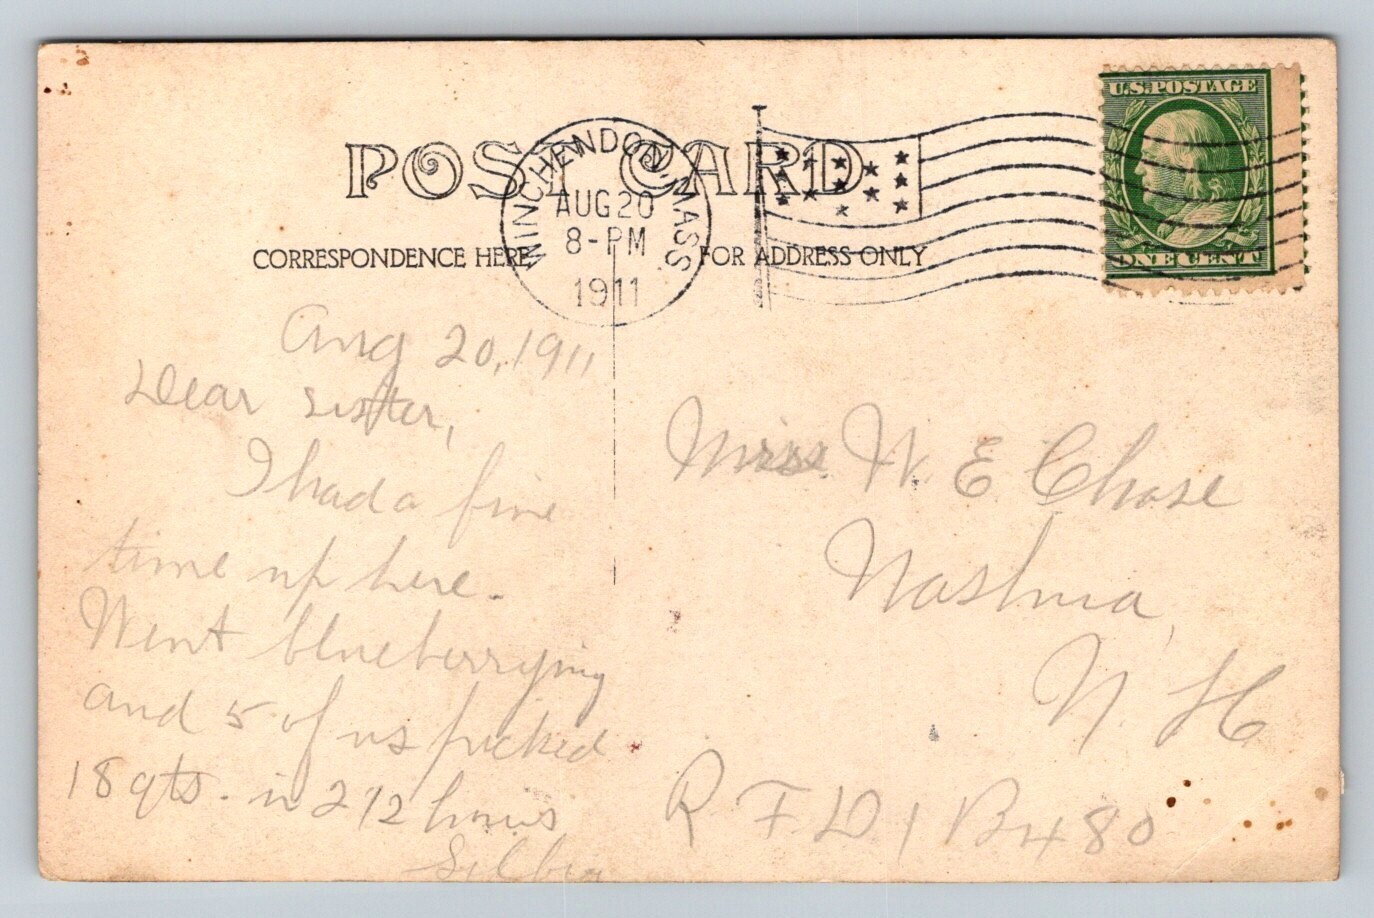 POST CARD
WINCHENDON, MASS
AUG 20
8-PM
1911
U.S. POSTAGE
ONE CENT
CORRESPONDENCE HERE
FOR ADDRESS ONLY
Aug 20, 1911
Dear sister,
I had a fine
time up here.
Went blueberrying
and 5 of us picked
18 qts. in 2 1/2 hours
Miss W. E Chase
Nashua,
N. H
R F D 1 B 480